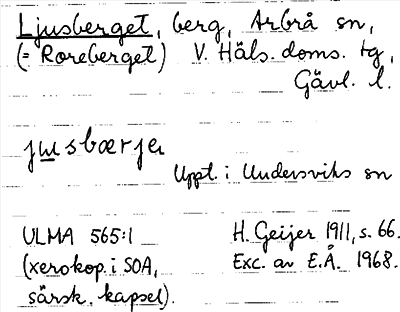 Ljusberget, berg, Arbrå sn,
(= Roreberget) V. Häls. doms. tg,
Gävl. l.
jusbærja
Uppt. i Undersviks sn
ULMA 565:1 H. Geijer 1911, s. 66.
(xerokop. i SOA, Exc. av E.Å. 1968.
särsk. kapsel).